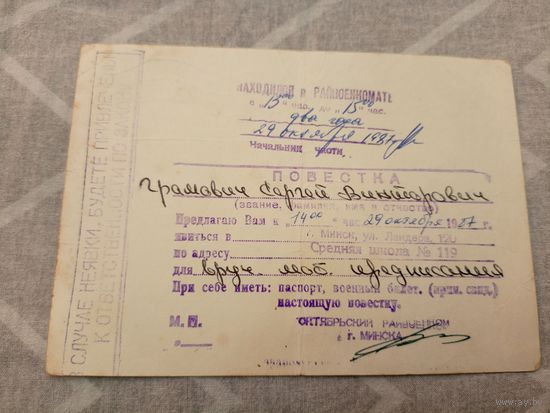 НАХОДИЛСЯ в РАЙВОЕНКОМАТЕ
с „13⁰⁰" час. до „15⁰⁰" час.
два года
29 октября 1987
Начальник части
ПОВЕСТКА
Грамович Сергей Викторович
(звание, фамилия, имя и отчество)
Предлагаю Вам к „14⁰⁰" час. 29 октября 1987 г.
явиться в г. Минск, ул. Ландера,
по адресу Средняя школа № 119
для вруч. моб. предписания
При себе иметь: паспорт, военный билет. (прип. свид.)
настоящую повестку.
М. П. ОКТЯБРЬСКИЙ РАЙВОЕНКОМ
г. МИНСКА
В СЛУЧАЕ НЕЯВКИ БУДЕТЕ ПРИВЛЕЧЕНЫ
К ОТВЕТСТВЕННОСТИ ПО
ay.by